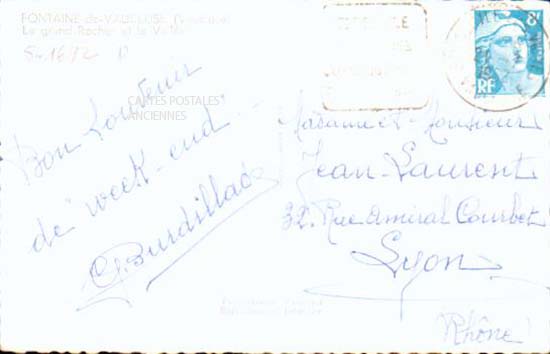 FONTAINE-de-VAUCLUSE (Vaucluse)
Le grand Rocher et la
CARTES POSTALES
ANCIENNES
Bon Souvenir
de week-end
G. Burdillac
8F
RF
Madame et Monsieur
Jean-Laurent
32, Rue Amiral Courbet
Lyon
(Rhône)